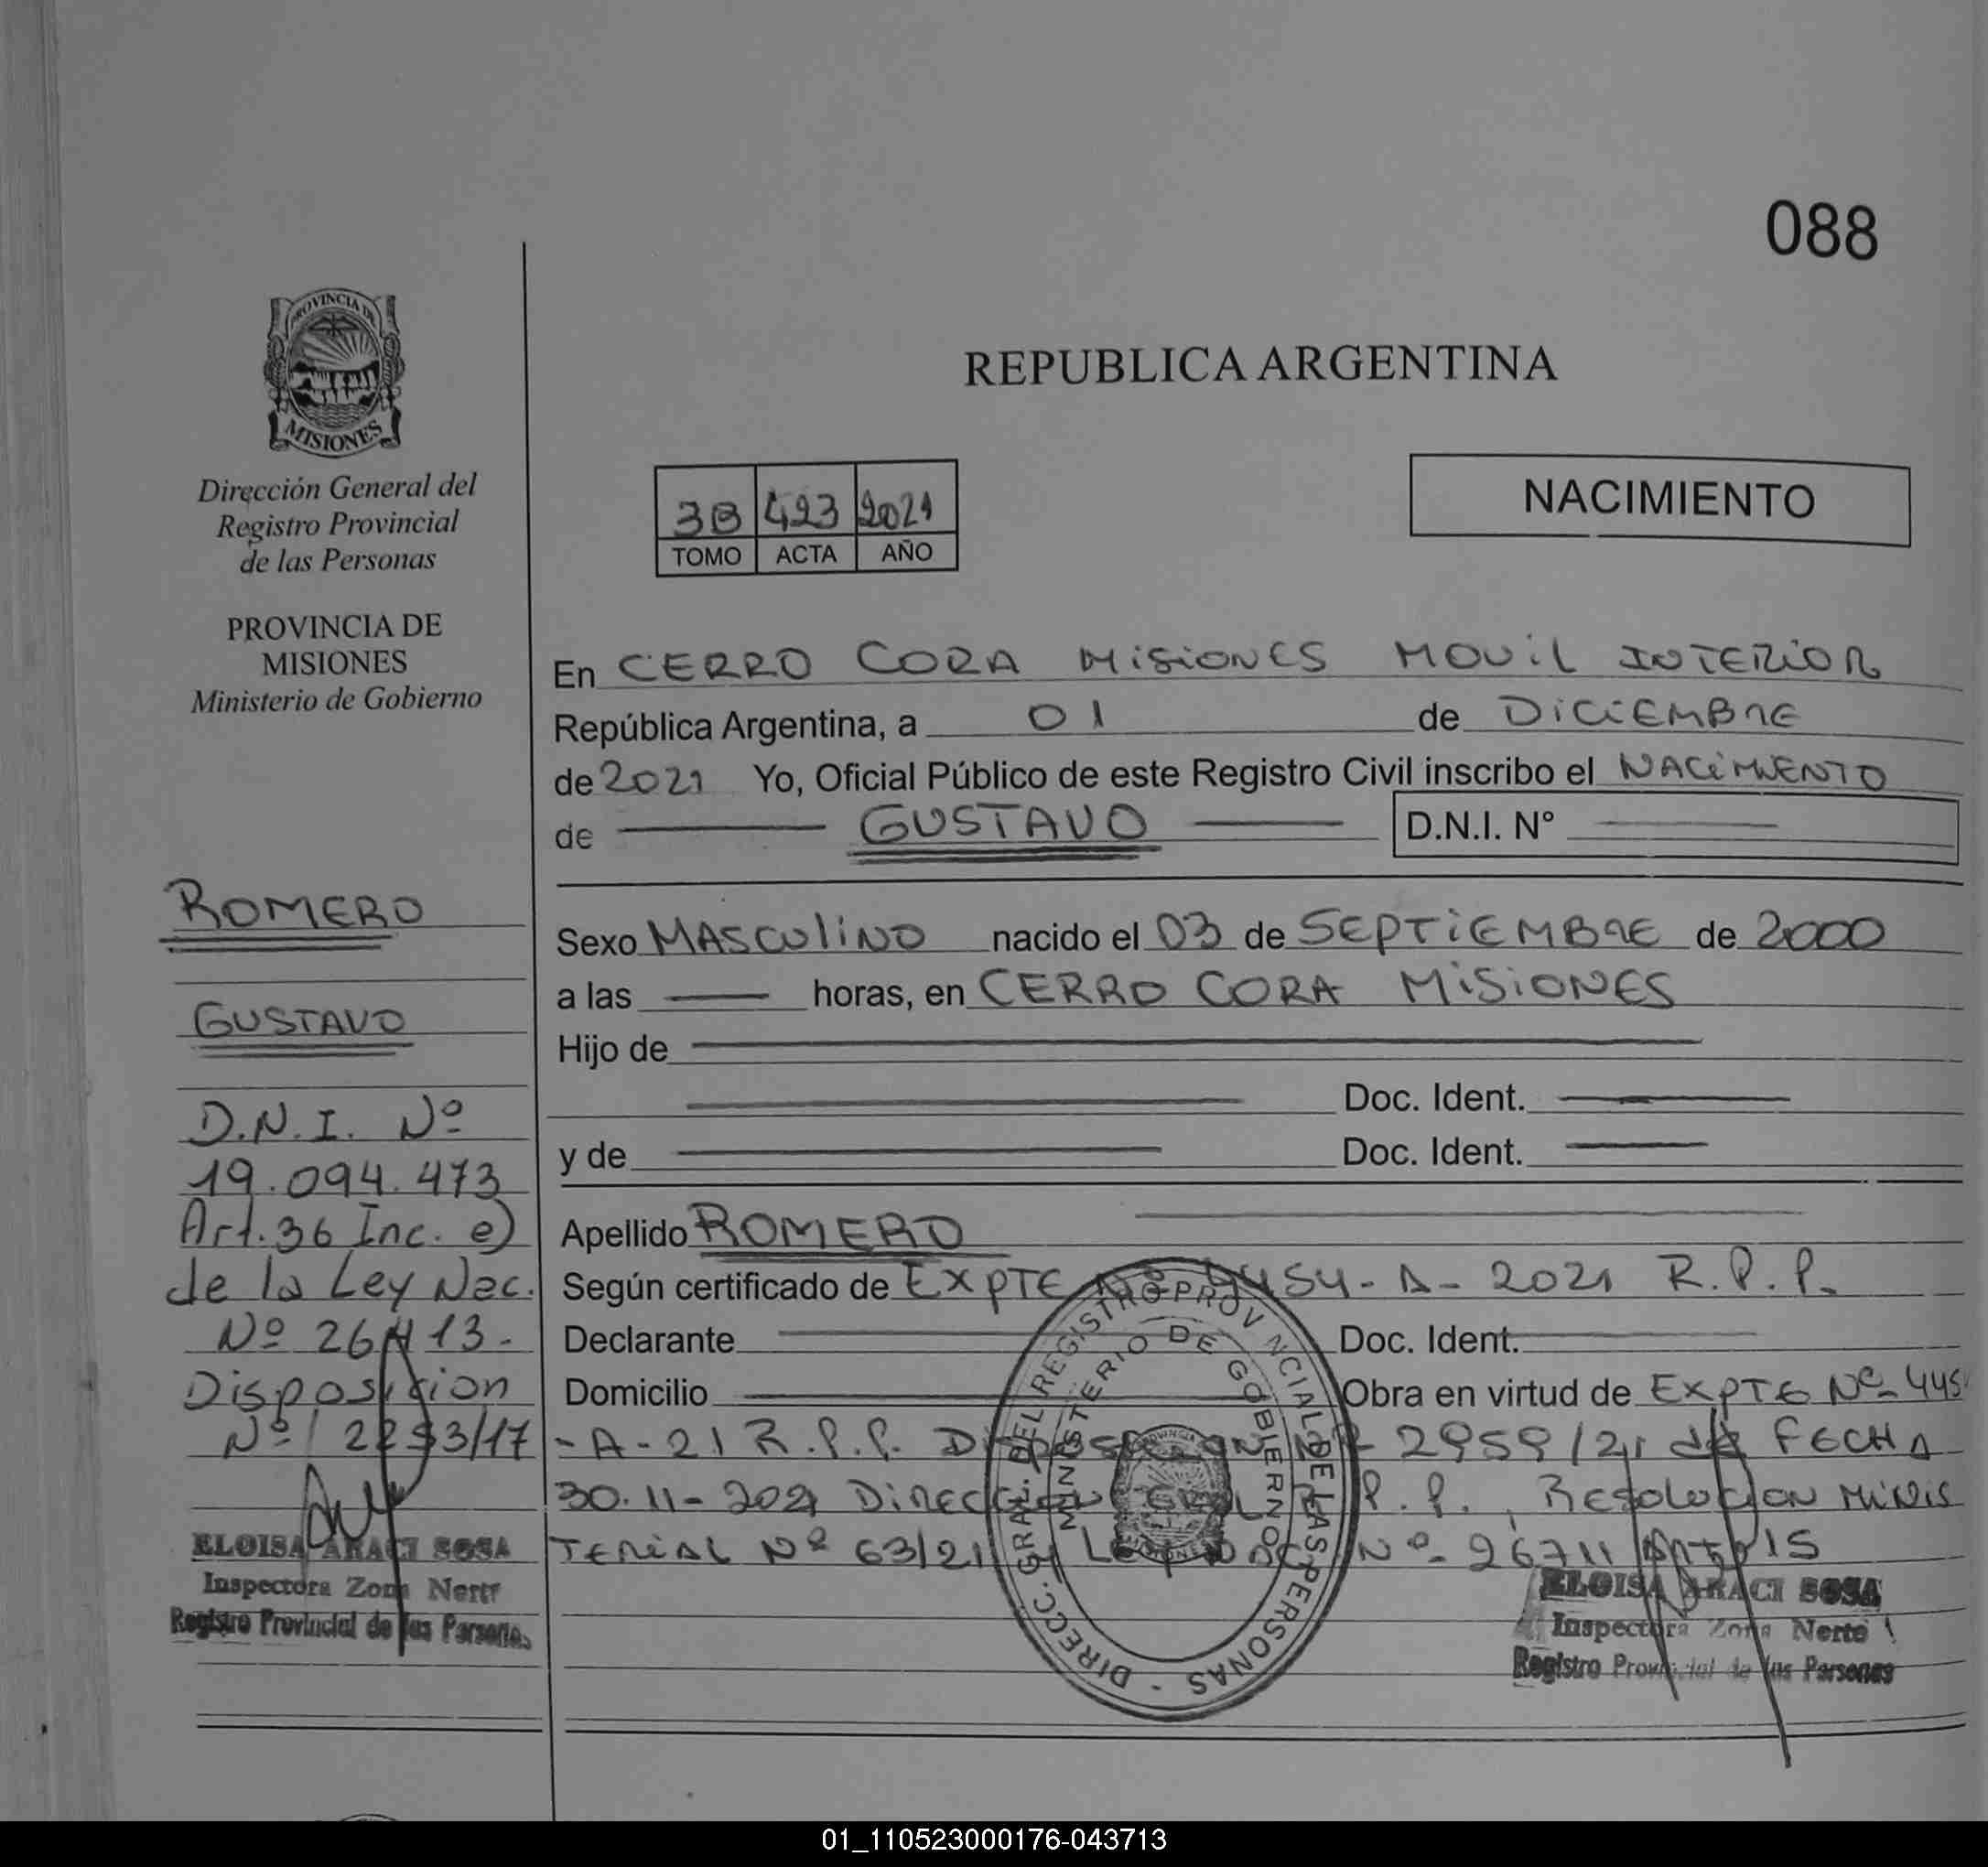 088
PROVINCIA DE
MISIONES
Dirección General del
Registro Provincial
de las Personas
PROVINCIA DE
MISIONES
Ministerio de Gobierno
ROMERO
GUSTAVO
D.N.I. Nº
19.094.473
Art. 36 Inc. e)
de la Ley Nac.
Nº 26413.
Disposicion
Nº 2293/17
ELOISA ARACI SOSA
Inspectora Zona Norte
Registro Provincial de las Personas
REPUBLICA ARGENTINA
3B 423 2021
TOMO ACTA AÑO
NACIMIENTO
En CERRO CORA MISIONES MOVIL INTERIOR
República Argentina, a 01 de DICIEMBRE
de 2021 Yo, Oficial Público de este Registro Civil inscribo el NACIMIENTO
de GUSTAVO D.N.I. N°
Sexo MASCULINO nacido el 03 de SEPTIEMBRE de 2000
a las horas, en CERRO CORA MISIONES
Hijo de
Doc. Ident.
y de Doc. Ident.
Apellido ROMERO
Según certificado de EXPTE Nº 4454-A-2021 R.P.P.
Declarante Doc. Ident.
Domicilio Obra en virtud de EXPTE Nº 445
-A-21 R.P.P. DISPOSICION Nº 2959/21 de FECHA
30-11-2021 DIRECCION GRAL R.P.P., RESOLUCION MINIS
TERIAL Nº 63/21 y LEY Nº 26711 15
DIRECC. GRAL. DEL REGISTRO PROVINCIAL DE LAS PERSONAS -
MINISTERIO DE GOBIERNO
ELOISA ARACI SOSA
Inspectora Zona Norte
Registro Provincial de las Personas
01_110523000176-043713